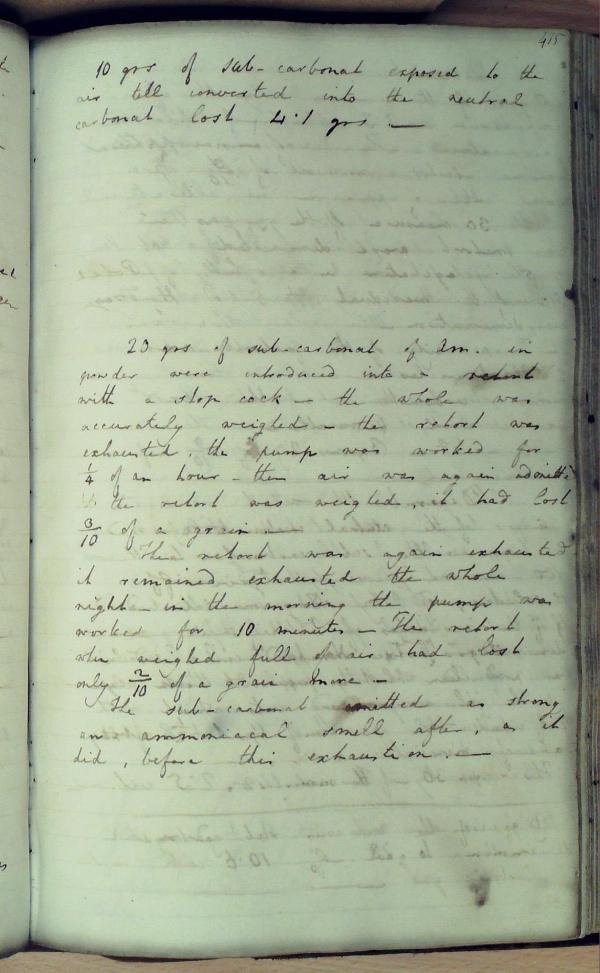 415
10 grs of sub-carbonat exposed to the
air till converted into the neutral
carbonat lost 4.1 grs —
23 grs of sub-carbonat of Am. in
powder were introduced into a retort
with a stop cock — the whole was
accurately weighed — the retort was
exhausted, the pump was worked for
1/4 of an hour — then air was again admitted
& the retort was weighed, it had lost
3/10 of a grain —
The retort was again exhausted
it remained exhausted the whole
night — in the morning the pump was
worked for 10 minutes — The retort
when weighed full of air had lost
only 2/10 of a grain more —
The sub-carbonat emitted as strong
an ammoniacal smell after, as it
did, before this exhaustion. —